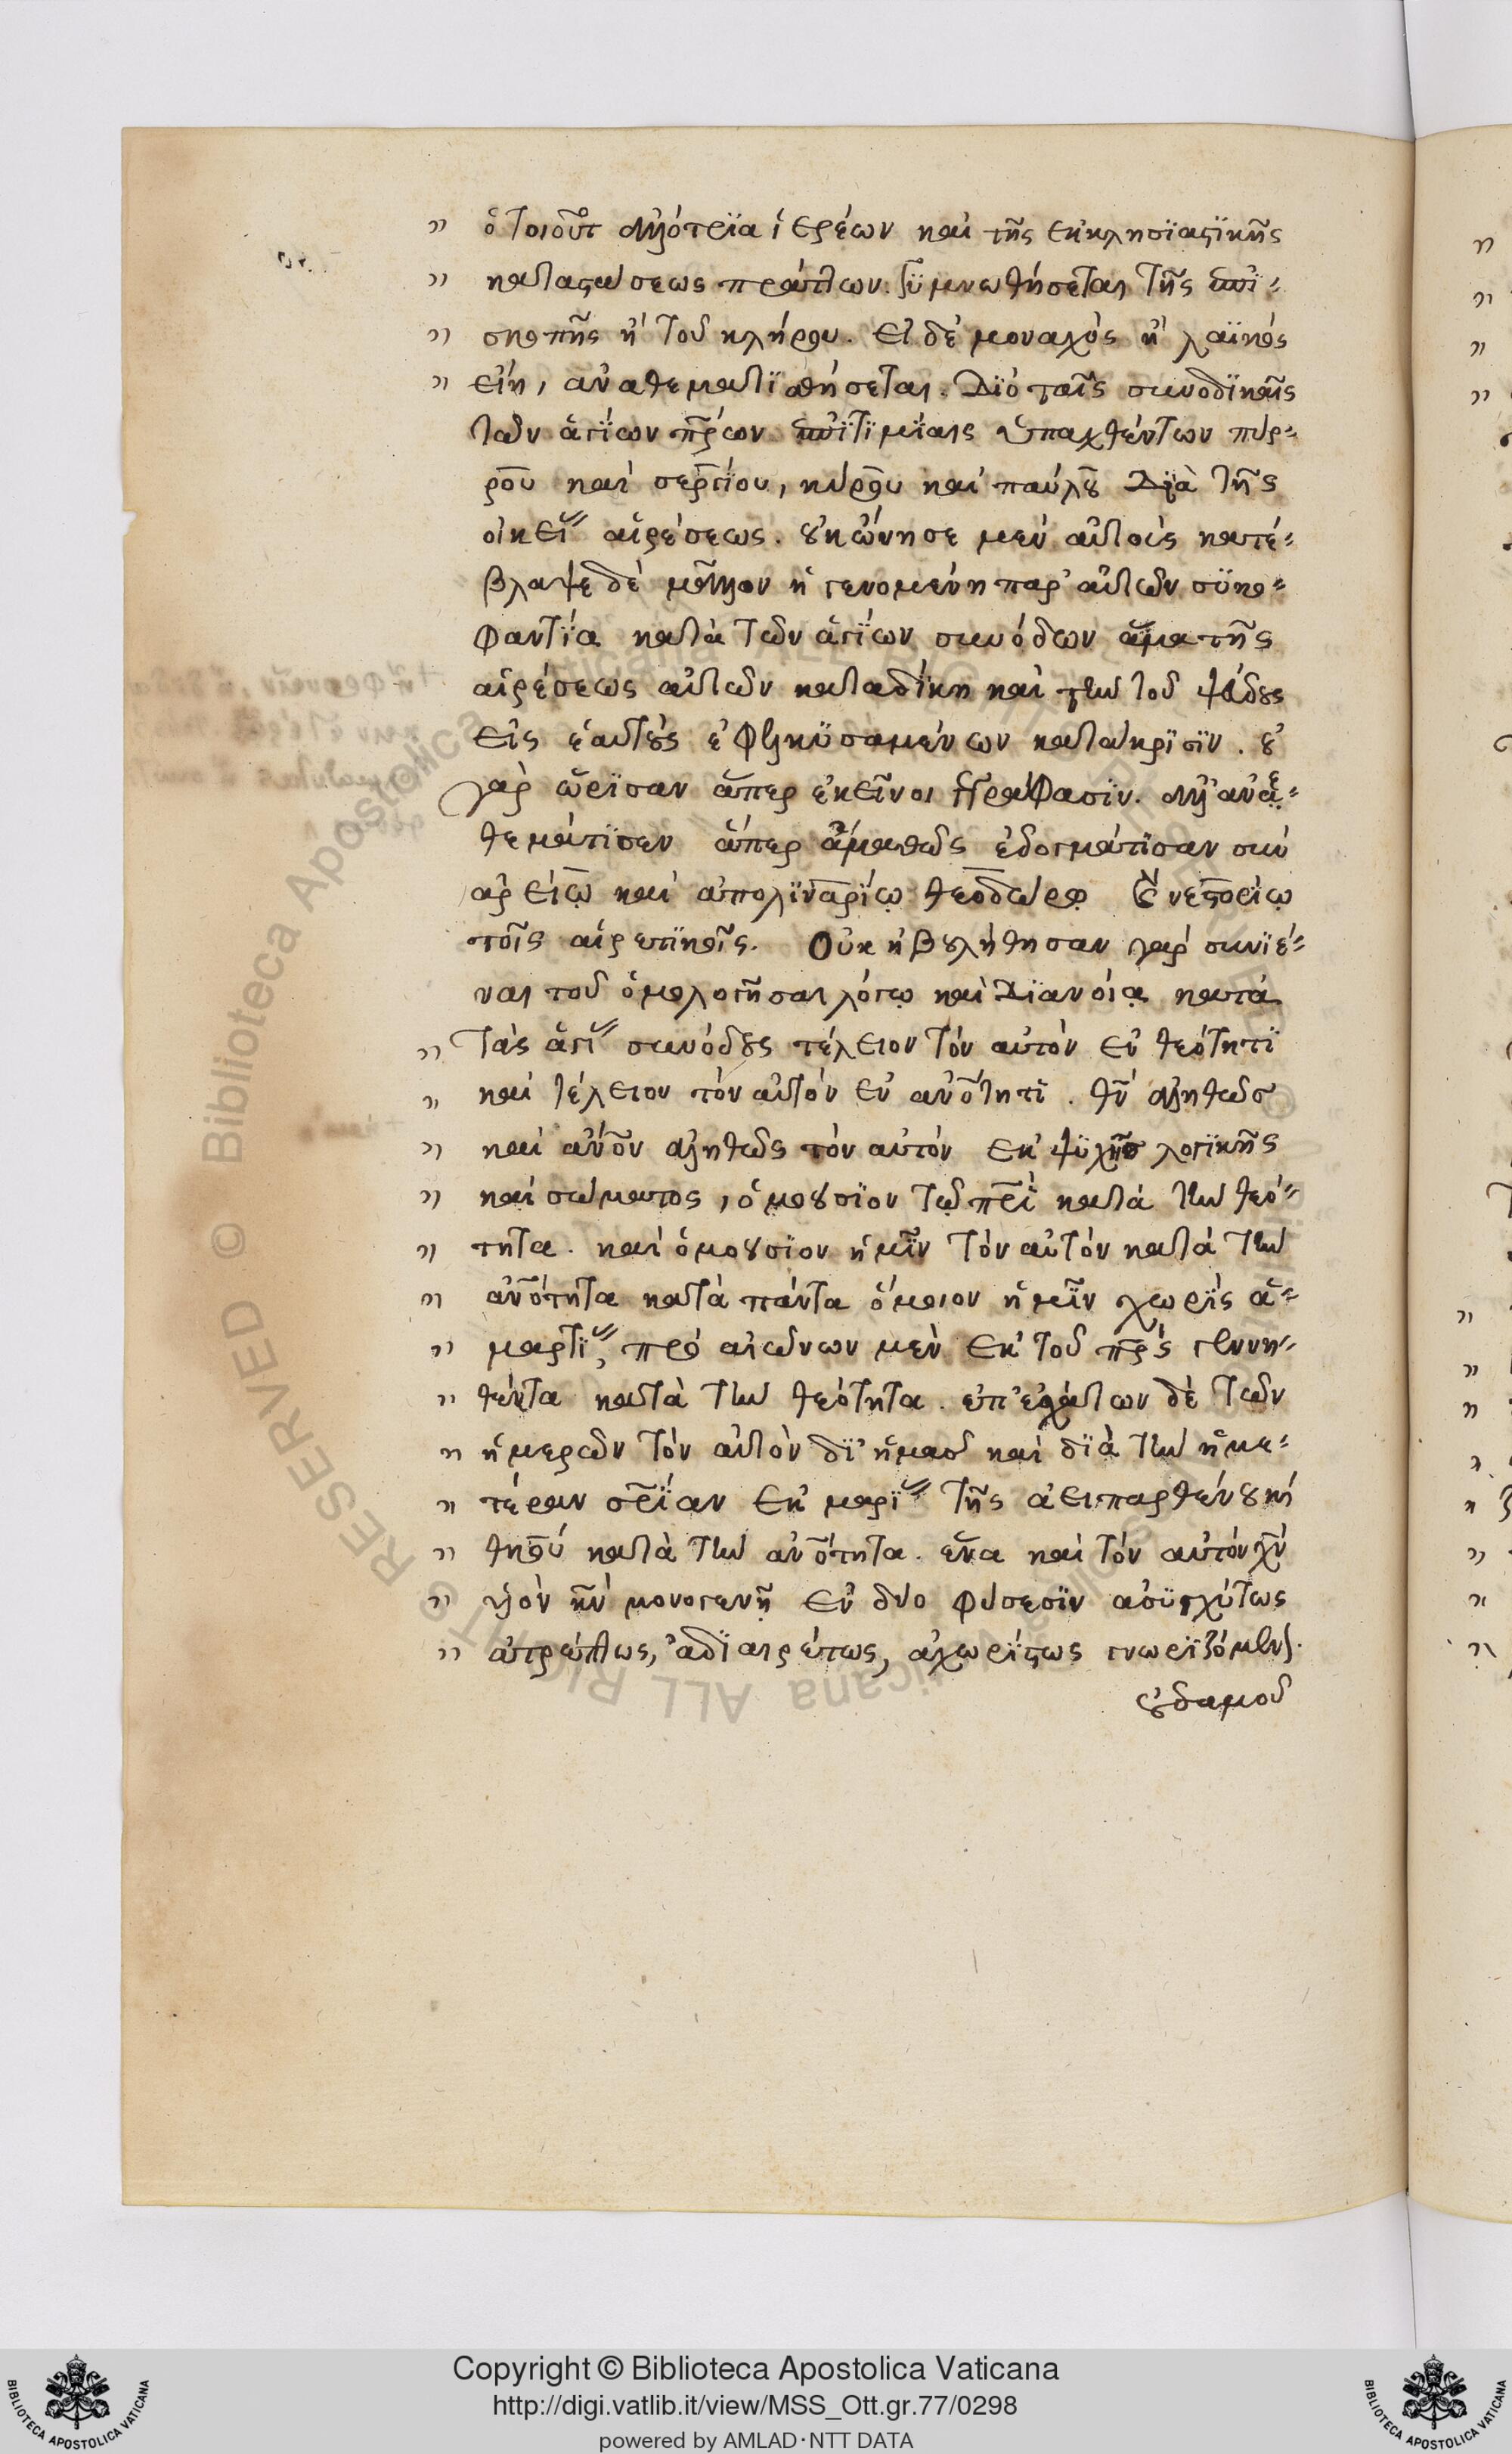 ὁ τοιοῦτ ἀλλότρϊα ἱερέων καὶ τῆς ἐκκλησϊαστϊκῆς
καταστάσεως πράττων. γϋμνωθήσεται τῆς ἐπϊ-
σκοπῆς ἢ τοῦ κλήρου. εἰ δὲ μοναχὸς ἢ λαϊκὸς
εἴη, ἀναθεματϊσθήσεται. Διὸ ταῖς συνοδϊκαῖς
τῶν ἁγΐων πρων ἐπϊτϊμΐαις ὑπαχθέντων πύρ-
ρου καὶ σεργΐου, κύρου καὶ παύλου Διὰ τῆς
οἰκεί αἱρέσεως. οὐκ ὤνησε μὲν αὐτοὺς κατέ-
βλαψε δὲ μᾶλλον ἡ γενομένη παρ' αὐτῶν σϋκο-
φαντΐα κατὰ τῶν ἁγΐων συνόδων ἅμα τῆς
αἱρέσεως αὐτῶν καταδΐκη καὶ τὴν τοῦ ψεύδους
εἰς ἑαυτοὺς ἐφελκϋσαμένων κατάκρϊσϊν. οὐ
γὰρ ὥρϊσαν ἅπερ ἐκεῖνοι γεγράφασϊν. ἀλλ' ἀνα-
θεμάτϊσεν ἅπερ ἀμαθῶς ἐδογμάτϊσαν σὺν
ἀρείῳ καὶ ἀπολϊναρΐῳ θεοδώρῳ καὶ νεστορίῳ
τοῖς αἱρετϊκοῖς. Οὐκ ἠβουλήθησαν γὰρ συνϊέ-
ναι τοῦ ὁμολογῆσαι λόγῳ καὶ Διανοίᾳ κατὰ
τὰς ἁγΐ συνόδους τέλειον τὸν αὐτὸν ἐν θεότητϊ
καὶ τέλειον τὸν αὐτὸν ἐν ἀνότητϊ. θν ἀληθῶς
καὶ ἄνον ἀληθῶς τὸν αὐτὸν ἐκ ψϋχῆς λογϊκῆς
καὶ σώματος, ὁμοούσϊον τῷ πρϊ κατὰ τὴν θεό-
τητα. καὶ ὁμοούσϊον ἡμῖν τὸν αὐτὸν κατὰ τὴν
ἀνότητα κατὰ πάντα ὅμοιον ἡμῖν χωρὶς ἁ-
μαρτϊ, πρὸ αἰώνων μὲν ἐκ τοῦ πρς γεννη-
θέντα κατὰ τὴν θεότητα. ἐπ' ἐσχάτων δὲ τῶν
ἡμερῶν τὸν αὐτὸν δϊ' ἡμᾶς καὶ δϊὰ τὴν ἡμε-
τέραν σρΐαν ἐκ μαρϊ τῆς ἀειπαρθένου καὶ
θκου κατὰ τὴν ἀνότητα. ἕνα καὶ τὸν αὐτὸν χν
υἱὸν κν μονογενῆ ἐν δύο φύσεσϊν ἀσϋγχύτως
ἀτρέπτως, ἀδϊαιρέτως, ἀχωρΐστως γνωρϊζόμεν.
οὐδαμοῦ
Copyright © Biblioteca Apostolica Vaticana
http://digi.vatlib.it/view/MSS_Ott.gr.77/0298
powered by AMLAD·NTT DATA